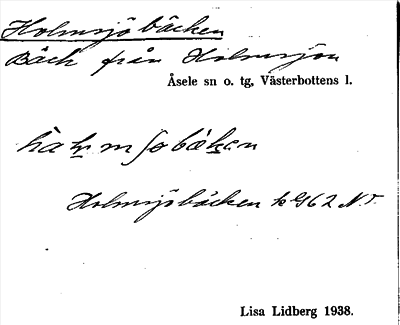 Holmsjöbäcken
Bäck från Holmsjön
Åsele sn o. tg, Västerbottens l.
Holmsjöbäcken
Lisa Lidberg 1938.